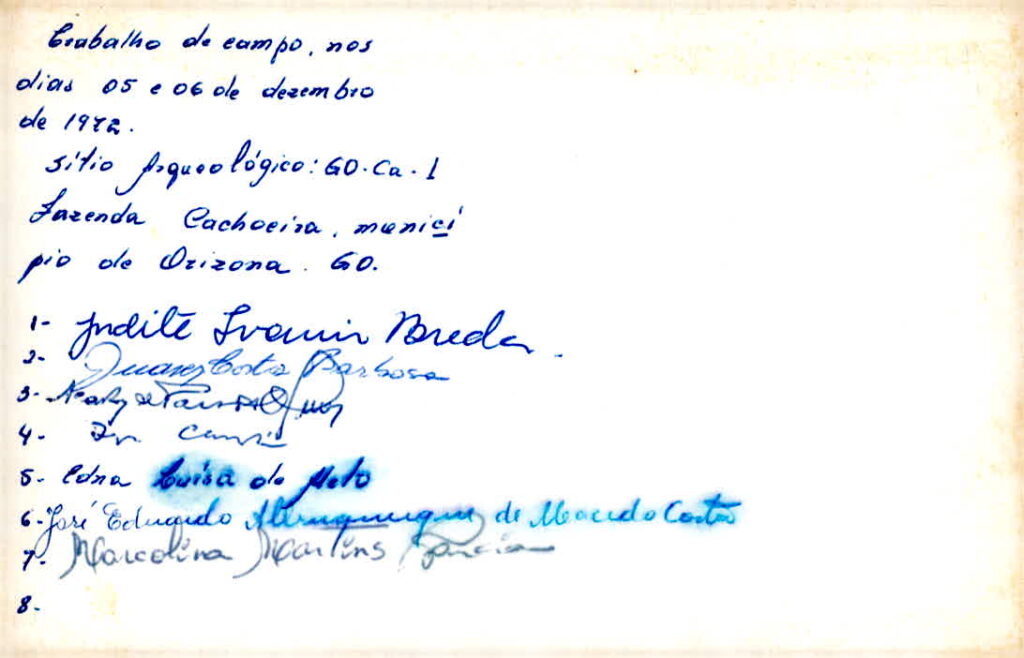 Trabalho de campo, nos
dias 05 e 06 de dezembro
de 1972.
Sítio Arqueológico: GO.Ca.1
Fazenda Cachoeira, municí
pio de Orizona. GO.
1- Judite Ivanir Breda.
2- Juarez Costa Barbosa
3-
4-
5- Edna Luisa de Melo
6- José Eduardo de Macedo Costa
7- Marcolina Martins Garcia
8-